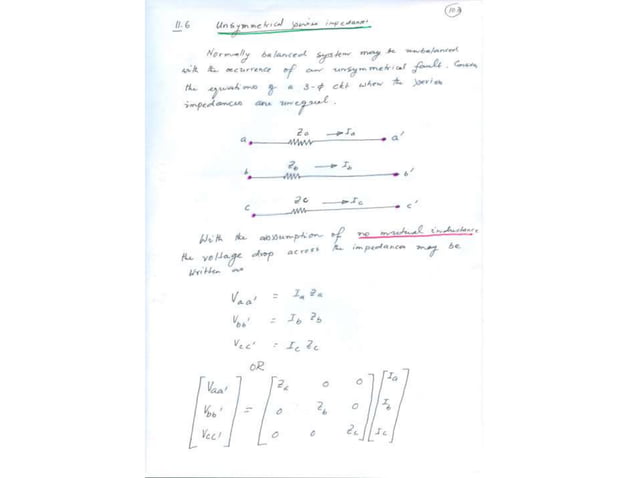 103
11.6 Unsymmetrical series impedances
Normally balanced system may be unbalanced
with the occurrence of an unsymmetrical fault. Consider
the equations of a 3-φ ckt when the series
impedances are unequal.
a Za → Ia a'
b Zb → Ib b'
c Zc → Ic c'
With the assumption of no mutual inductance
the voltage drop across the impedances may be
written as
Vaa' = Ia Za
Vbb' = Ib Zb
Vcc' = Ic Zc
OR
[Vaa'] [Za 0 0] [Ia]
[Vbb'] = [0 Zb 0] [Ib]
[Vcc'] [0 0 Zc] [Ic]